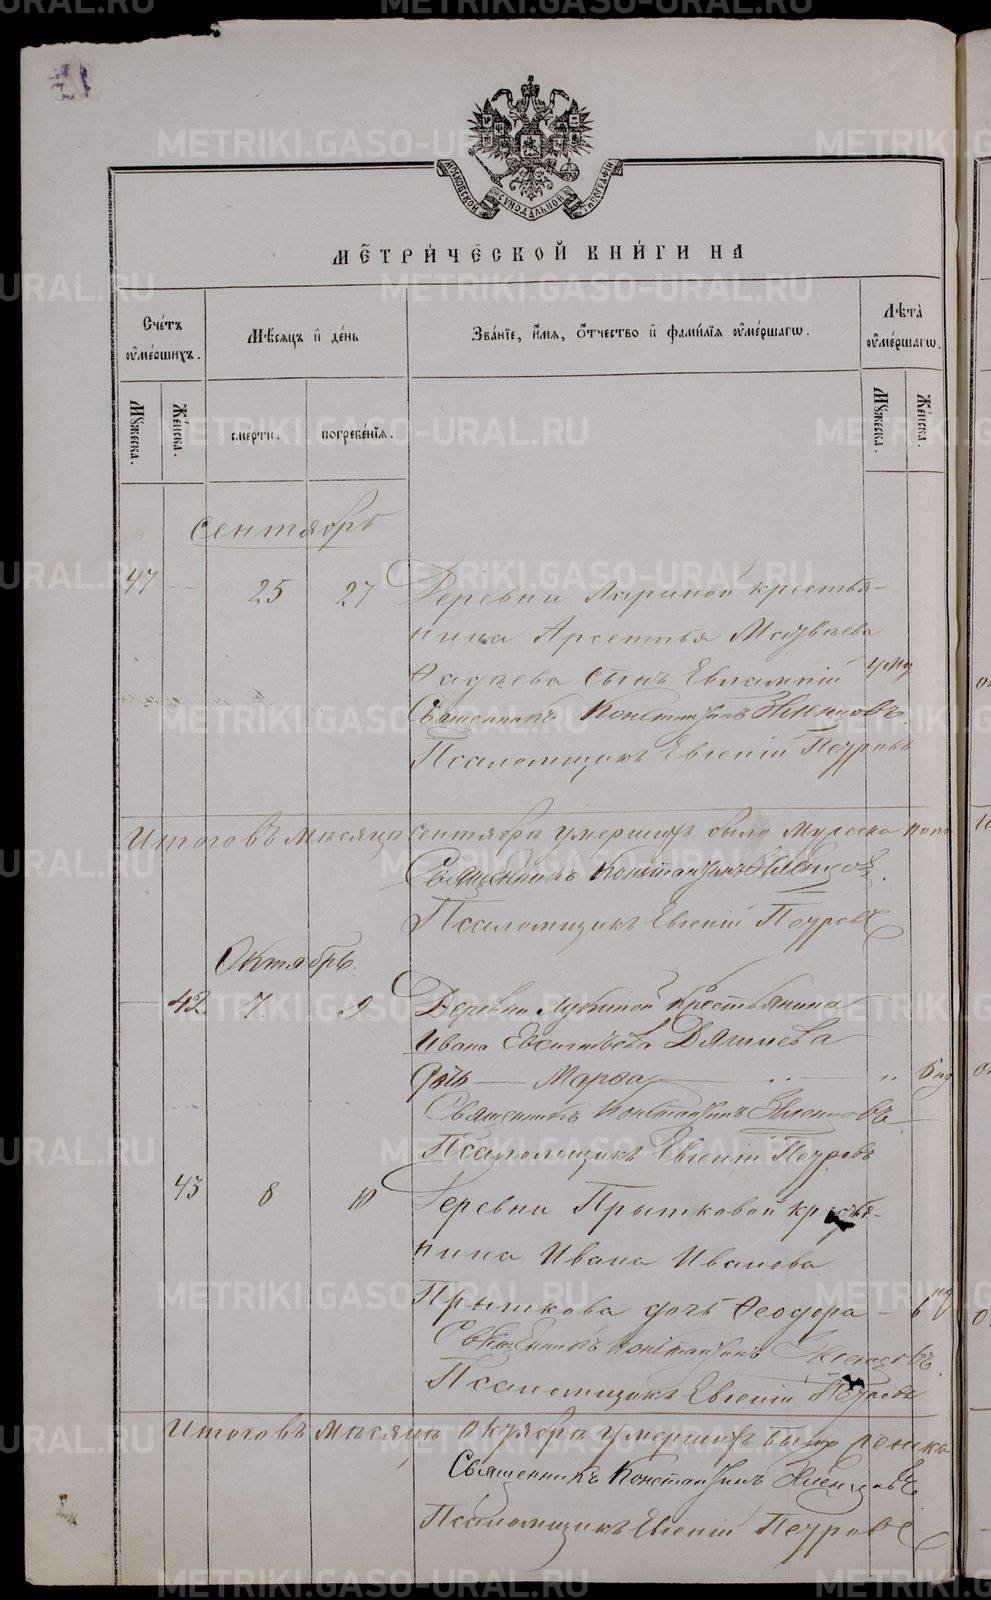 МОСКОВСКОЙ СѴНОДАЛЬНОЙ ТИПОГРАФІИ
МЕТРИ́ЧЕСКОЙ КНИ́ГИ НА
Сче́тъ ᲂу҆ме́ршихъ.
Мѣ́сяцъ и҆ де́нь
Зва́нїе, и҆́мя, ѻ҆́тчество и҆ фами́лїя ᲂу҆ме́ршагѡ.
Лѣ́та ᲂу҆ме́ршагѡ.
Мꙋ́жеска.
Же́нска.
сме́рти.
погребе́нїя.
Мꙋ́жеска.
Же́нска.
Сентябрь
47 25 27 Деревни Лариной крестья-
нина Арсентья Матвѣева
Фадѣева сынъ Евлампій
Священникъ Константинъ
Псаломщикъ Евгеній Петровъ
Итого въ мѣсяцѣ сентябрѣ умершихъ было мужеска пола
Священникъ Константинъ
Псаломщикъ Евгеній Петровъ
Октябрь.
42 7. 9. Деревни Лукиной крестьянина
Ивана
дочь Марѳа 6
Священникъ Константинъ
Псаломщикъ Евгеній Петровъ
43 8 10 Деревни Прытковой крестья-
нина Ивана Иванова
Прыткова дочь Ѳеодора 6
Священникъ Константинъ
Псаломщикъ Евгеній Петровъ
Итого въ мѣсяцѣ октябрѣ умершихъ было женска
Священникъ Константинъ
Псаломщикъ Евгеній Петровъ
METRIKI.GASO-URAL.RU